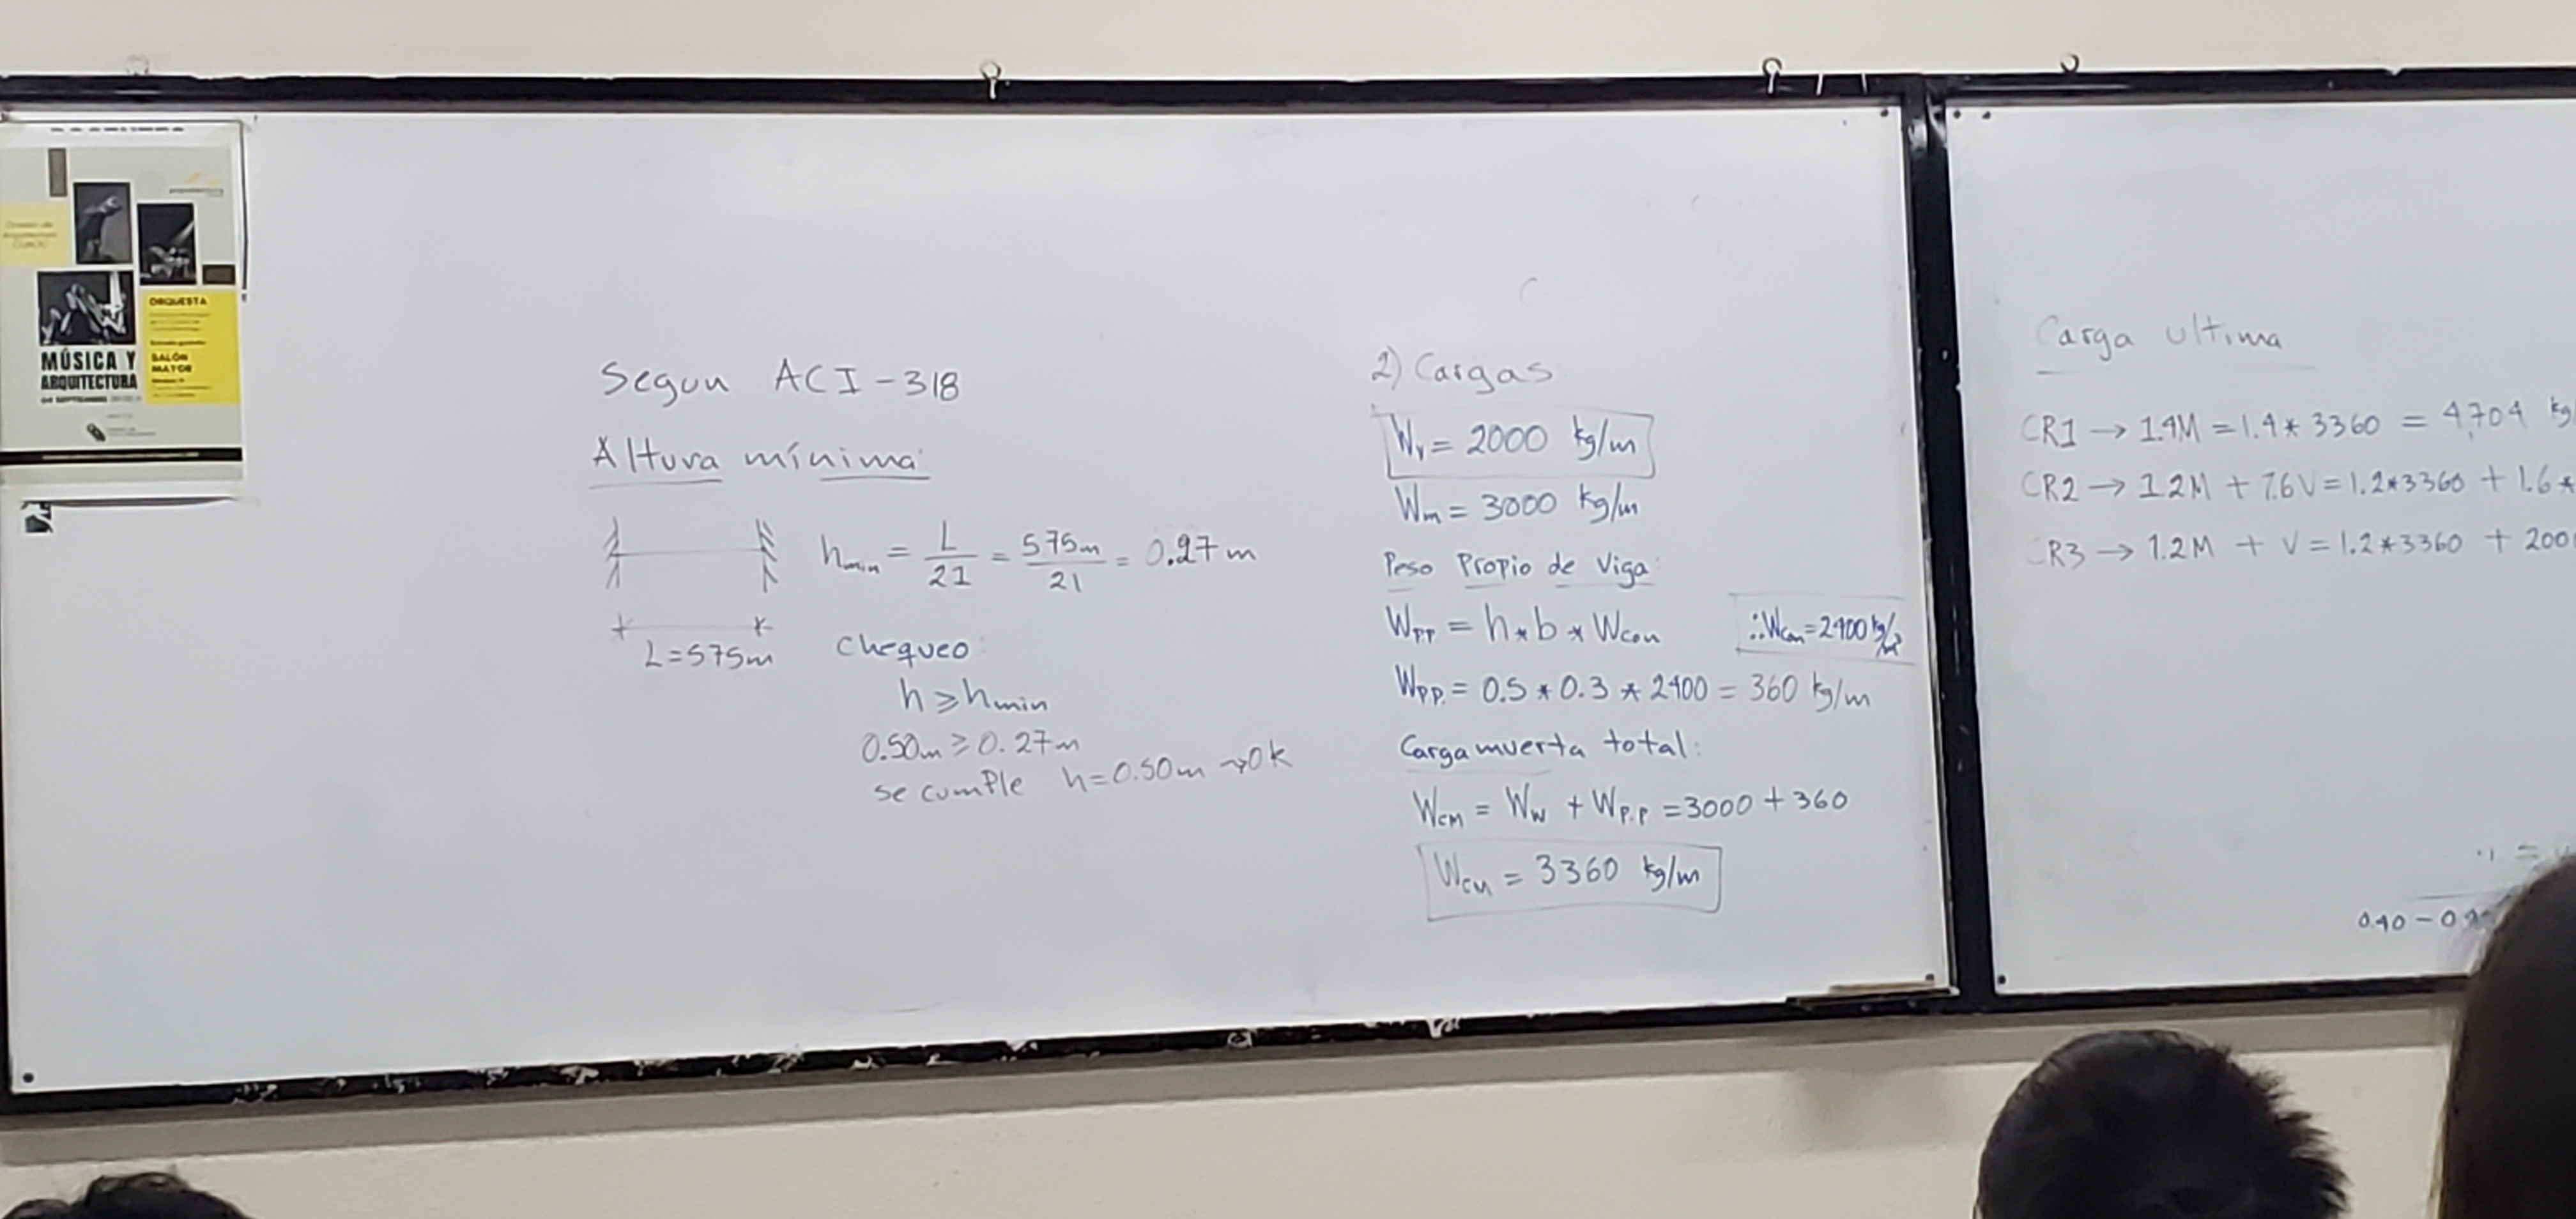 ORQUESTA
MÚSICA Y
ARQUITECTURA
SALÓN
MAYOR
Segun ACI-318
Altura mínima
hmin = L/21 = 575m/21 = 0.27m
L=575m
Chequeo:
h ≥ hmin
0.50m ≥ 0.27m
se cumple h=0.50m → Ok
2) Cargas
Wv = 2000 kg/m
Wm = 3000 kg/m
Peso Propio de Viga:
WPP = h * b * Wcon
∴ Wcon = 2400 kg/m³
WPP. = 0.5 * 0.3 * 2400 = 360 kg/m
Carga muerta total:
WCM = WW + WP.P = 3000 + 360
WCM = 3360 kg/m
Carga ultima
CR1 → 1.4M = 1.4 * 3360 = 4,704 kg
CR2 → 1.2M + 1.6V = 1.2*3360 + 1.6 *
CR3 → 1.2M + V = 1.2*3360 + 200
0.40 -